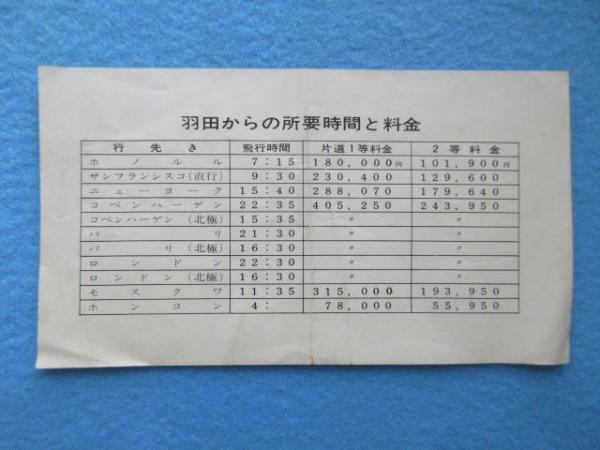 羽田からの所要時間と料金
行先き 飛行時間 片道1等料金 2等料金
ホノルル 7:15 180,000円 101,900円
サンフランシスコ(直行) 9:30 230,400 129,600
ニューヨーク 15:40 288,070 179,640
コペンハーゲン 22:35 405,250 243,950
コペンハーゲン(北極) 15:35 〃 〃
パリ 21:30 〃 〃
パリ(北極) 16:30 〃 〃
ロンドン 22:30 〃 〃
ロンドン(北極) 16:30 〃 〃
モスクワ 11:35 315,000 193,950
ホンコン 4: 78,000 55,950